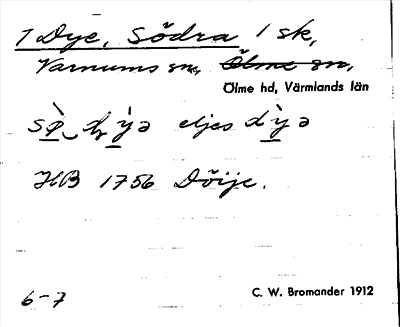 1 Dye, Södra 1 sk,
Varnums sn, Ölme sn,
Ölme hd, Värmlands län
eljes
HB 1756 Döije.
6-7
C. W. Bromander 1912